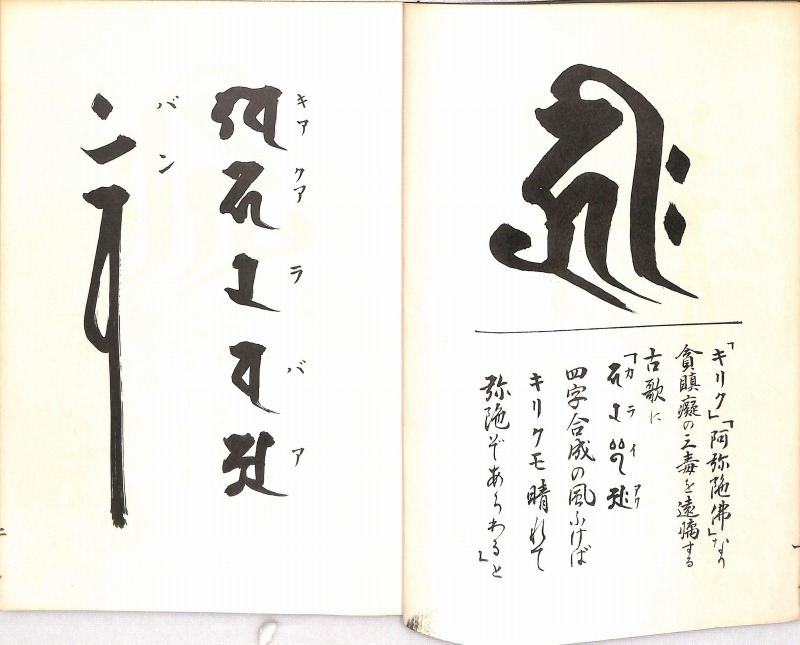 𑖮𑖿𑖨𑖱𑖾
「キリク」「阿弥陀佛」なり
貪瞋癡の三毒を遠離する
古歌に
「カ ラ イ アク
𑖮 𑖨 𑖂 𑖀𑖾
四字合成の風ふけば
キリクモ晴れて
弥陀ぞあらわると」
キア クア ラ バ ア
𑖏 𑖮 𑖨 𑖪 𑖀
バン
𑖪𑖽